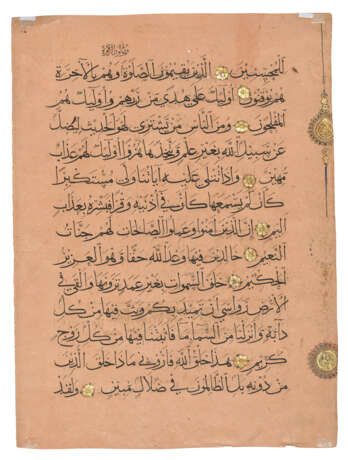 ويؤتون الزكوة
للمحسنين الذين يقيمون الصلوة وهم بالآخرة
هم يوقنون اوليك على هدى من ربهم واوليك هم
المفلحون ومن الناس من يشترى لهو الحديث ليضل
عن سبيل الله بغير علم ويتخذها هزوا اوليك لهم عذاب
مهين واذا تتلى عليه اياتنا ولى مستكبرا
كان لم يسمعها كان فى اذنيه وقرا فبشره بعذاب
اليم ان الذين امنوا وعملوا الصالحات لهم جنات
النعيم خالدين فيها وعد الله حقا وهو العزيز
الحكيم خلق السموات بغير عمد ترونها والقى فى
الارض رواسى ان تميد بكم وبث فيها من كل
دابة وانزلنا من السما ما فانبتنا فيها من كل زوج
كريم هذا خلق الله فارونى ماذا خلق الذين
من دونه بل الظالمون فى ضلال مبين ولقد